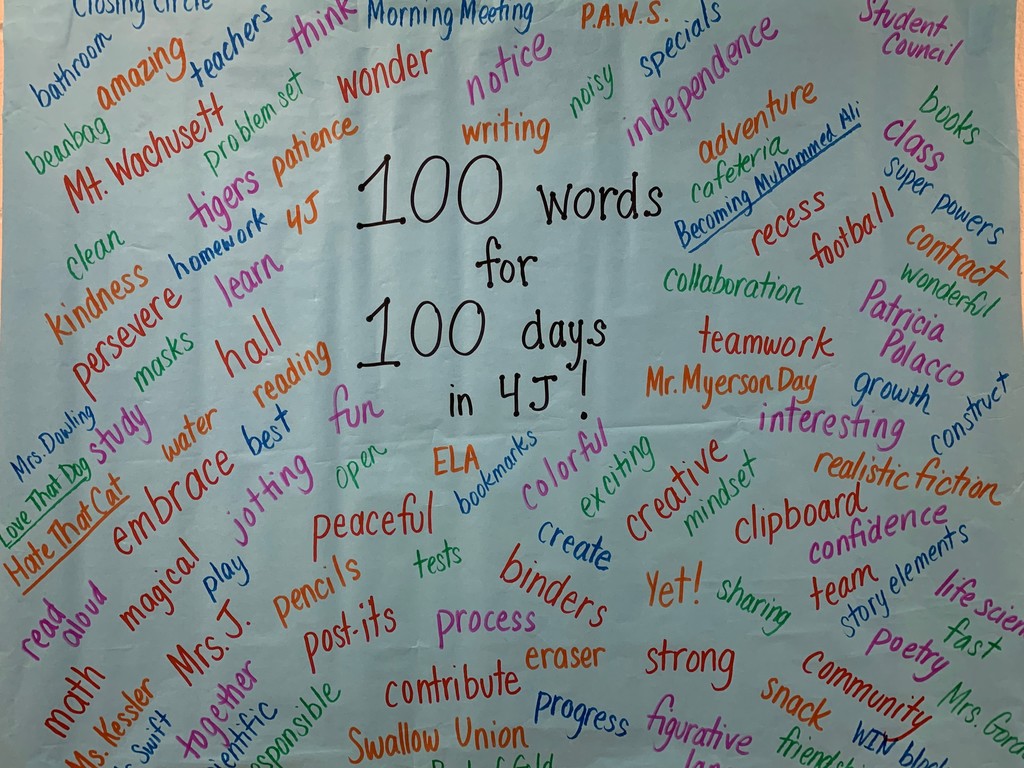 Closing Circle
Morning Meeting
P.A.W.S.
Student
Council
bathroom
amazing
teachers
think
wonder
notice
noisy
specials
independence
beanbag
Mt. Wachusett
problem set
patience
writing
adventure
cafeteria
Becoming Muhammed Ali
books
class
super powers
100 words
for
100 days
in 4J!
tigers
4J
clean
homework
learn
kindness
persevere
masks
hall
reading
recess
football
contract
wonderful
collaboration
Patricia
Polacco
teamwork
Mr. Myerson Day
growth
construct
interesting
Mrs. Dowling
study
water
best
fun
Love That Dog
Hate That Cat
embrace
jotting
open
ELA
bookmarks
colorful
exciting
creative
mindset
realistic fiction
clipboard
confidence
peaceful
create
magical
play
pencils
tests
binders
Yet!
sharing
team
story elements
life scien
fast
read
aloud
Mrs. J.
post-its
process
eraser
strong
poetry
community
math
Ms. Kessler
Swift
together
entific
esponsible
contribute
Swallow Union
progress
figurative
snack
friendsh
WIN bloc
Mrs. Gord